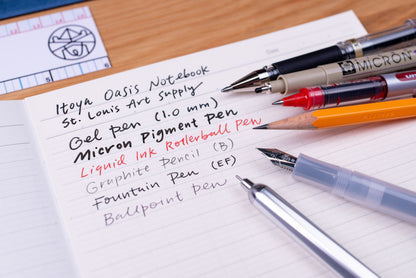 Date
Itoya Oasis Notebook
St. Louis Art Supply
Gel Pen (1.0 mm)
Micron Pigment Pen
Liquid Ink Rollerball Pen
Graphite Pencil (B)
Fountain Pen (EF)
Ballpoint Pen
MICRON